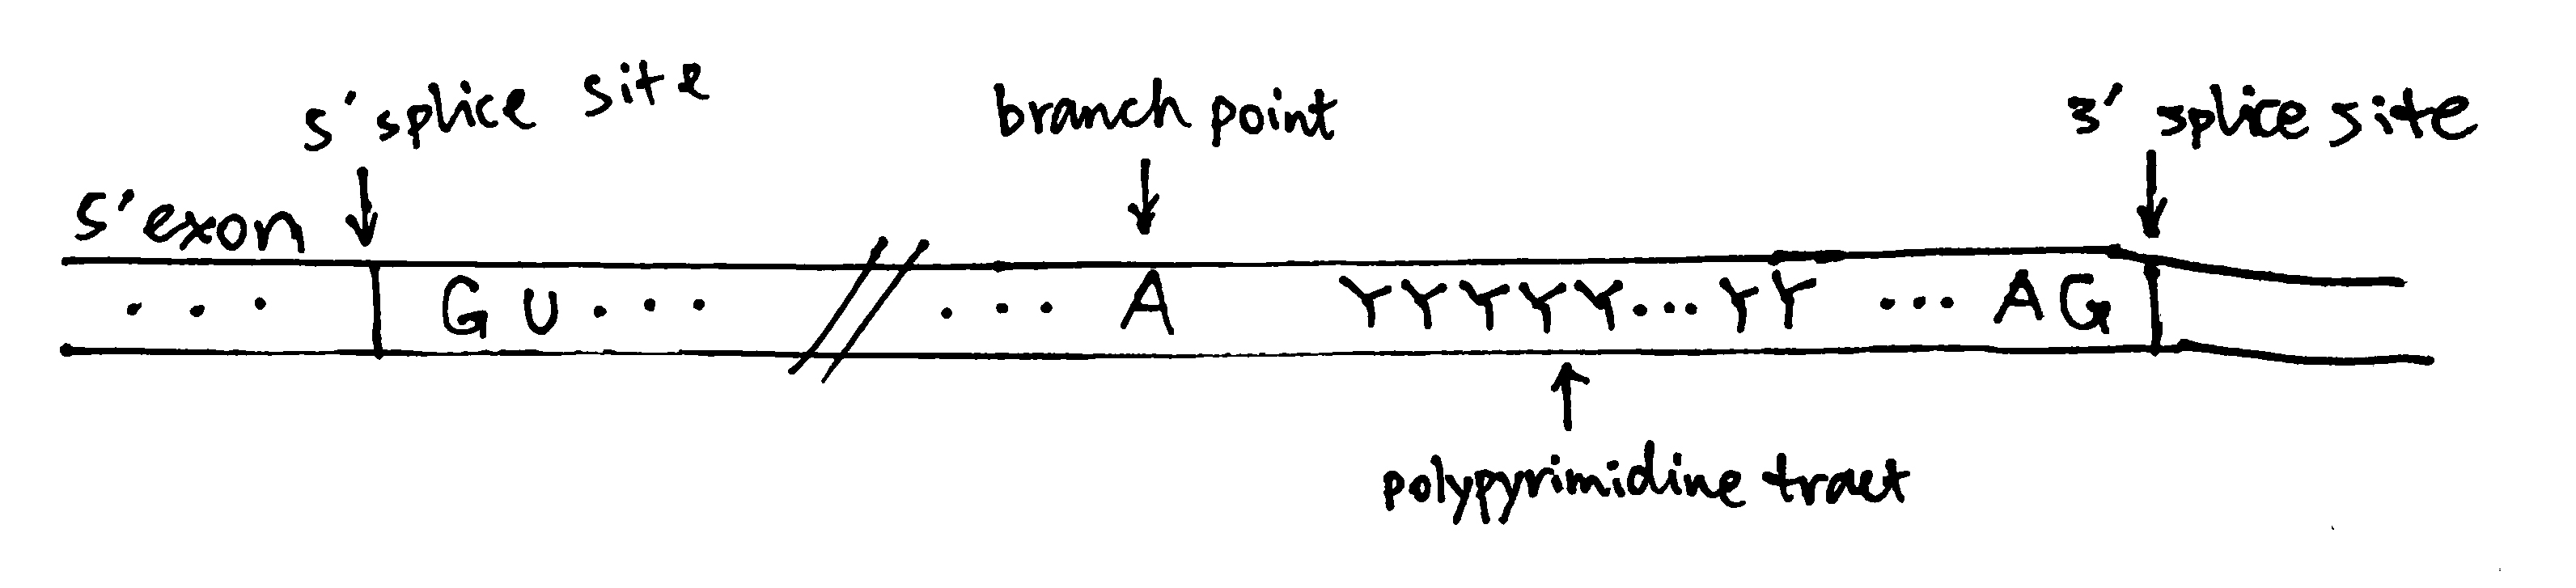 5' splice site
branch point
3' splice site
5' exon
... GU... // ... A YYYYY...YY ... AG
polypyrimidine tract